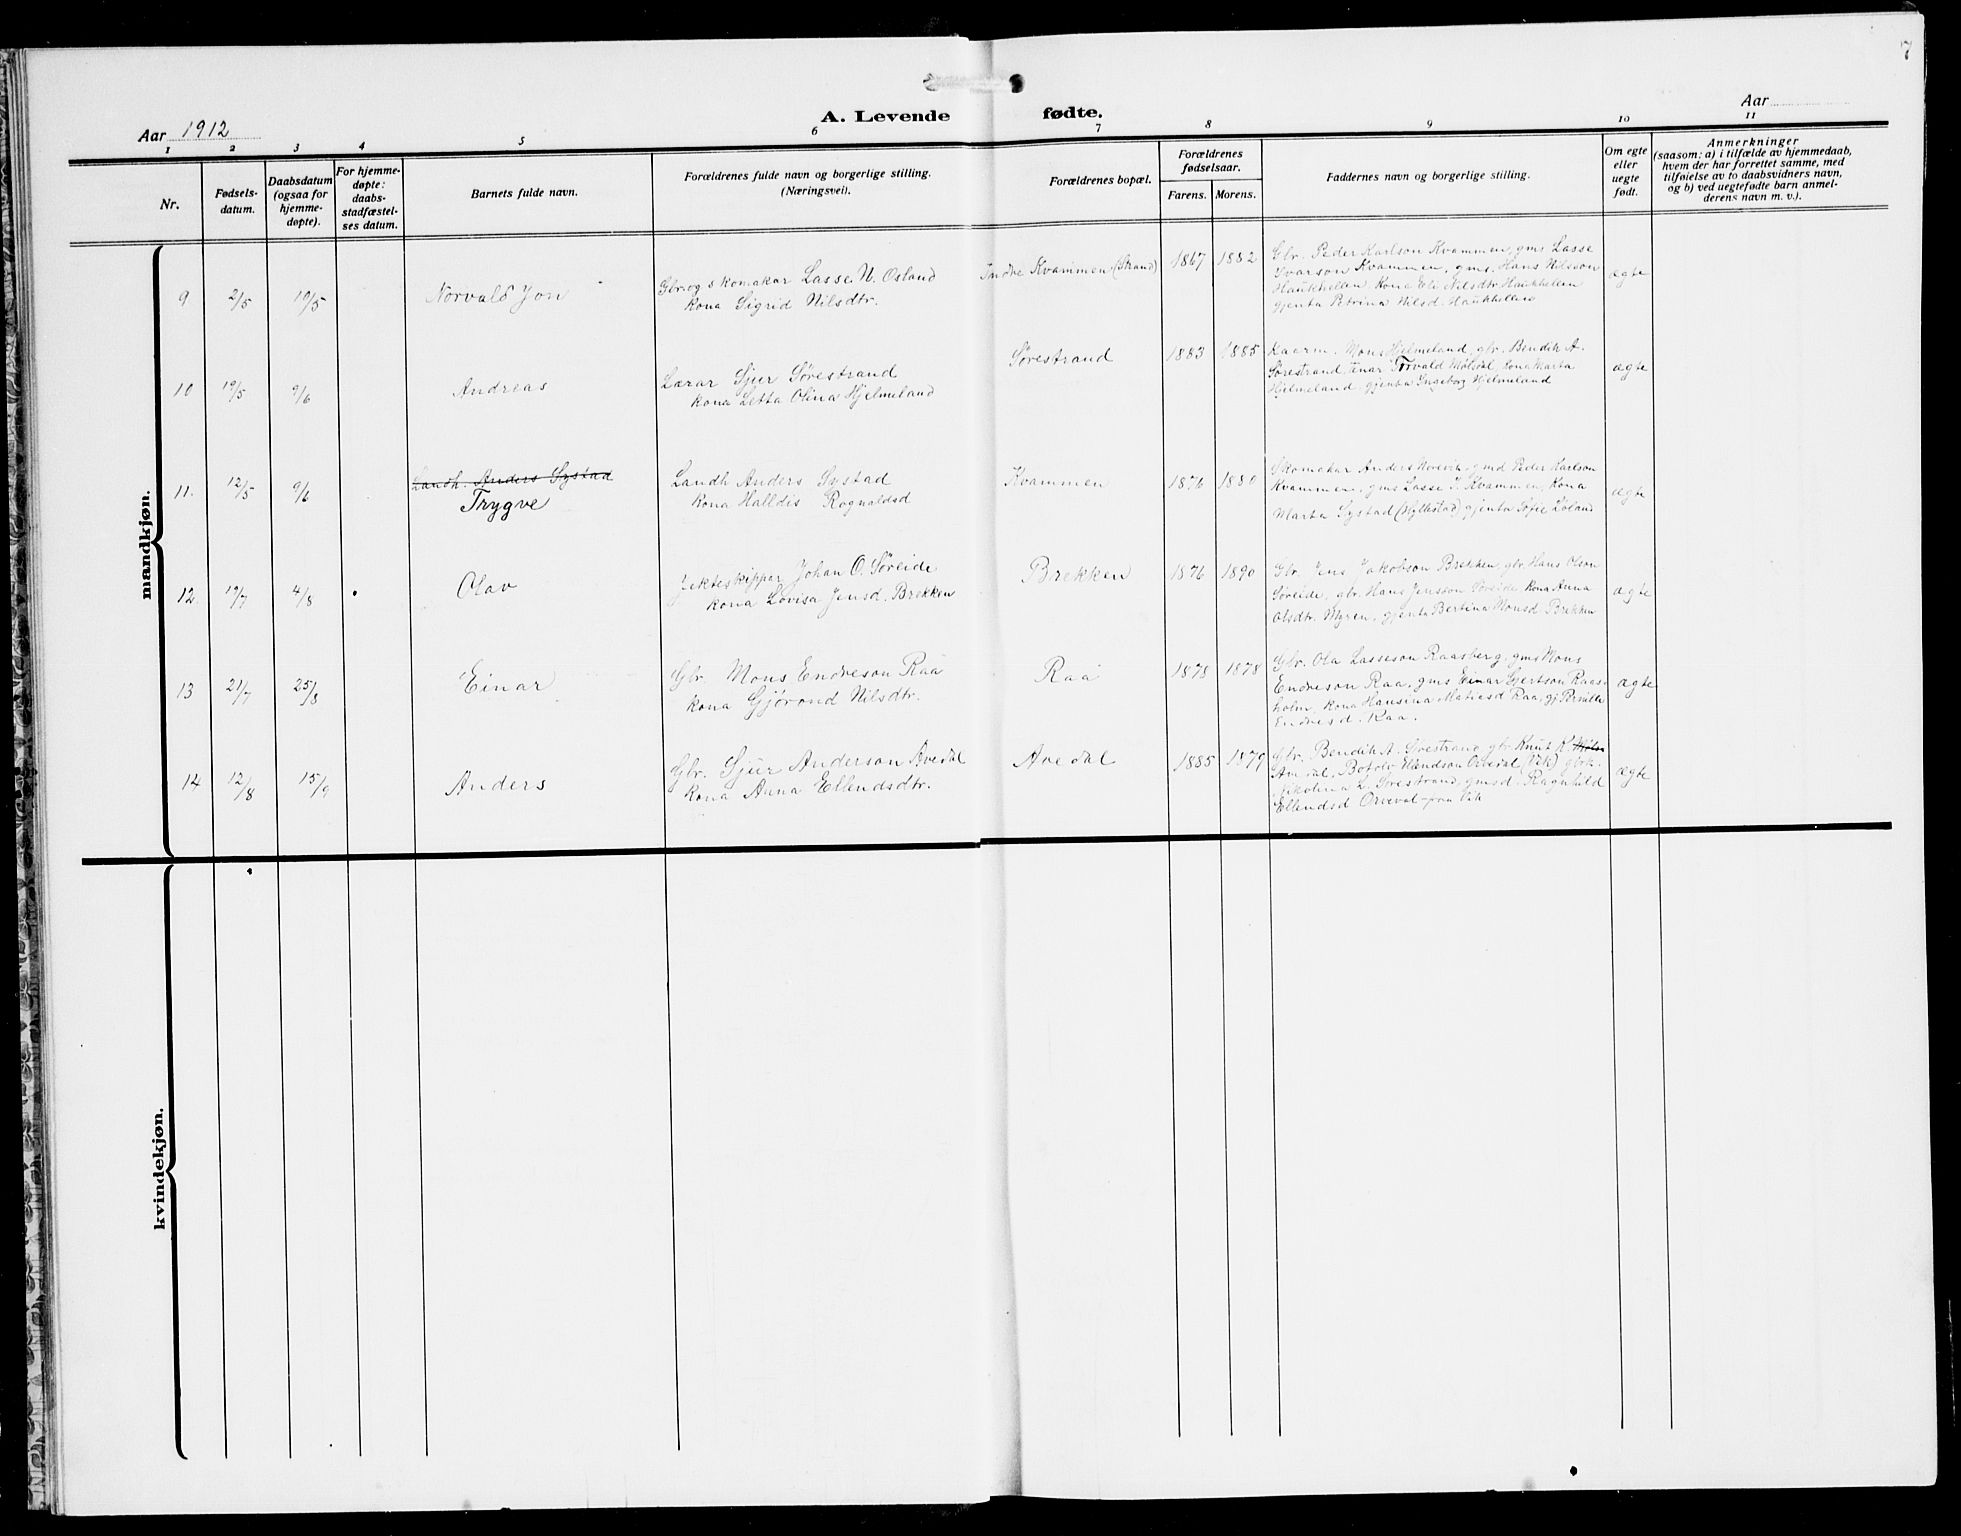 7
A. Levende fødte.
Aar 1912
Aar
1 2 3 4 5 6 7 8 9 10 11
Nr.
Fødsels-
datum.
Daabsdatum
(ogsaa for
hjemme-
døpte).
For hjemme-
døpte:
daabs-
stadfæstel-
ses datum.
Barnets fulde navn.
Forældrenes fulde navn og borgerlige stilling.
(Næringsvei).
Forældrenes bopæl.
Forældrenes
fødselsaar.
Farens. Morens.
Faddernes navn og borgerlige stilling.
Om egte
eller
uegte
født.
Anmerkninger
(saasom: a) i tilfælde av hjemmedaab,
hvem der har forrettet samme, med
tilføielse av to daabsvidners navn,
og b) ved uegtefødte barn anmel-
derens navn m. v.).
mandkjøn.
9 2/5 19/5 Norvald Jon
Gbr. og skomakar Lasse N. Osland
kona Sigrid Nilsdtr.
Indre Kvammen (Strand) 1867 1882
Gbr. Peder Karlson Kvammen, gms Lasse
Ivarson Kvammen, gms. Hans Nilsson
Haukhellen Kona Eli Nilsdtr Haukhellen
gjenta Petrina Nilsd. Haukhellen
ægte
10 19/5 9/6 Andreas
Lærar Sjur Sørestrand
kona Letta Olina Hjelmeland
Sørestrand 1883 1885
Kaarm. Mons Hjelmeland, gbr. Bendik A.
Sørestrand, tenar Torvald Mølsdal, kona Marta
Hjelmeland, gjenta Ingeborg Hjelmeland
ægte
11. 12/5 9/6 Landh. Anders Systad
Trygve
Landh Anders Systad
kona Halldis Rognaldsd
Kvammen 1876 1880
Skomakar Anders Norevik, gmd Peder Karlson
Kvammen, gms Lasse I. Kvammen, Kona
Marta Systad (Hyllestad) gjenta Sofie Loland
ægte
12. 19/7 4/8 Olav
Jekteskippar Johan O. Søreide
kona Lovisa Jensd. Brekken
Brekken 1876 1890
Gbr. Jens Jakobson Brekken, gbr. Hans Olson
Søreide, gbr. Hans Jensson Søreide Kona Anna
Olsdtr. Myren, gjenta Bertina Monsd Brekken
ægte
13 21/7 25/8 Einar
Gbr. Mons Endreson Raa
kona Gjørond Nilsdtr.
Raa 1878 1878
Gbr. Ola Lasseson Raasberg, gms Mons
Endreson Raa, gms Einar Gjertson Raas-
holm, kona Hansina Matiasd Raa, gj. Pernille
Endresd. Raa.
ægte
14 12/8 15/9 Anders
Gbr. Sjur Anderson Avedal
Kona Anna Ellendsdtr.
Avedal 1885 1879
Gbr. Bendik A. Sørestrand, gbr. Knut K.
Avedal, Botolv Ellendson Orvedal (Vik) gbrk.
Nikolina L. Sørestrand, gmsd. Ragnhild
Ellendsd Orvedal paa Vik
ægte
kvindekjøn.